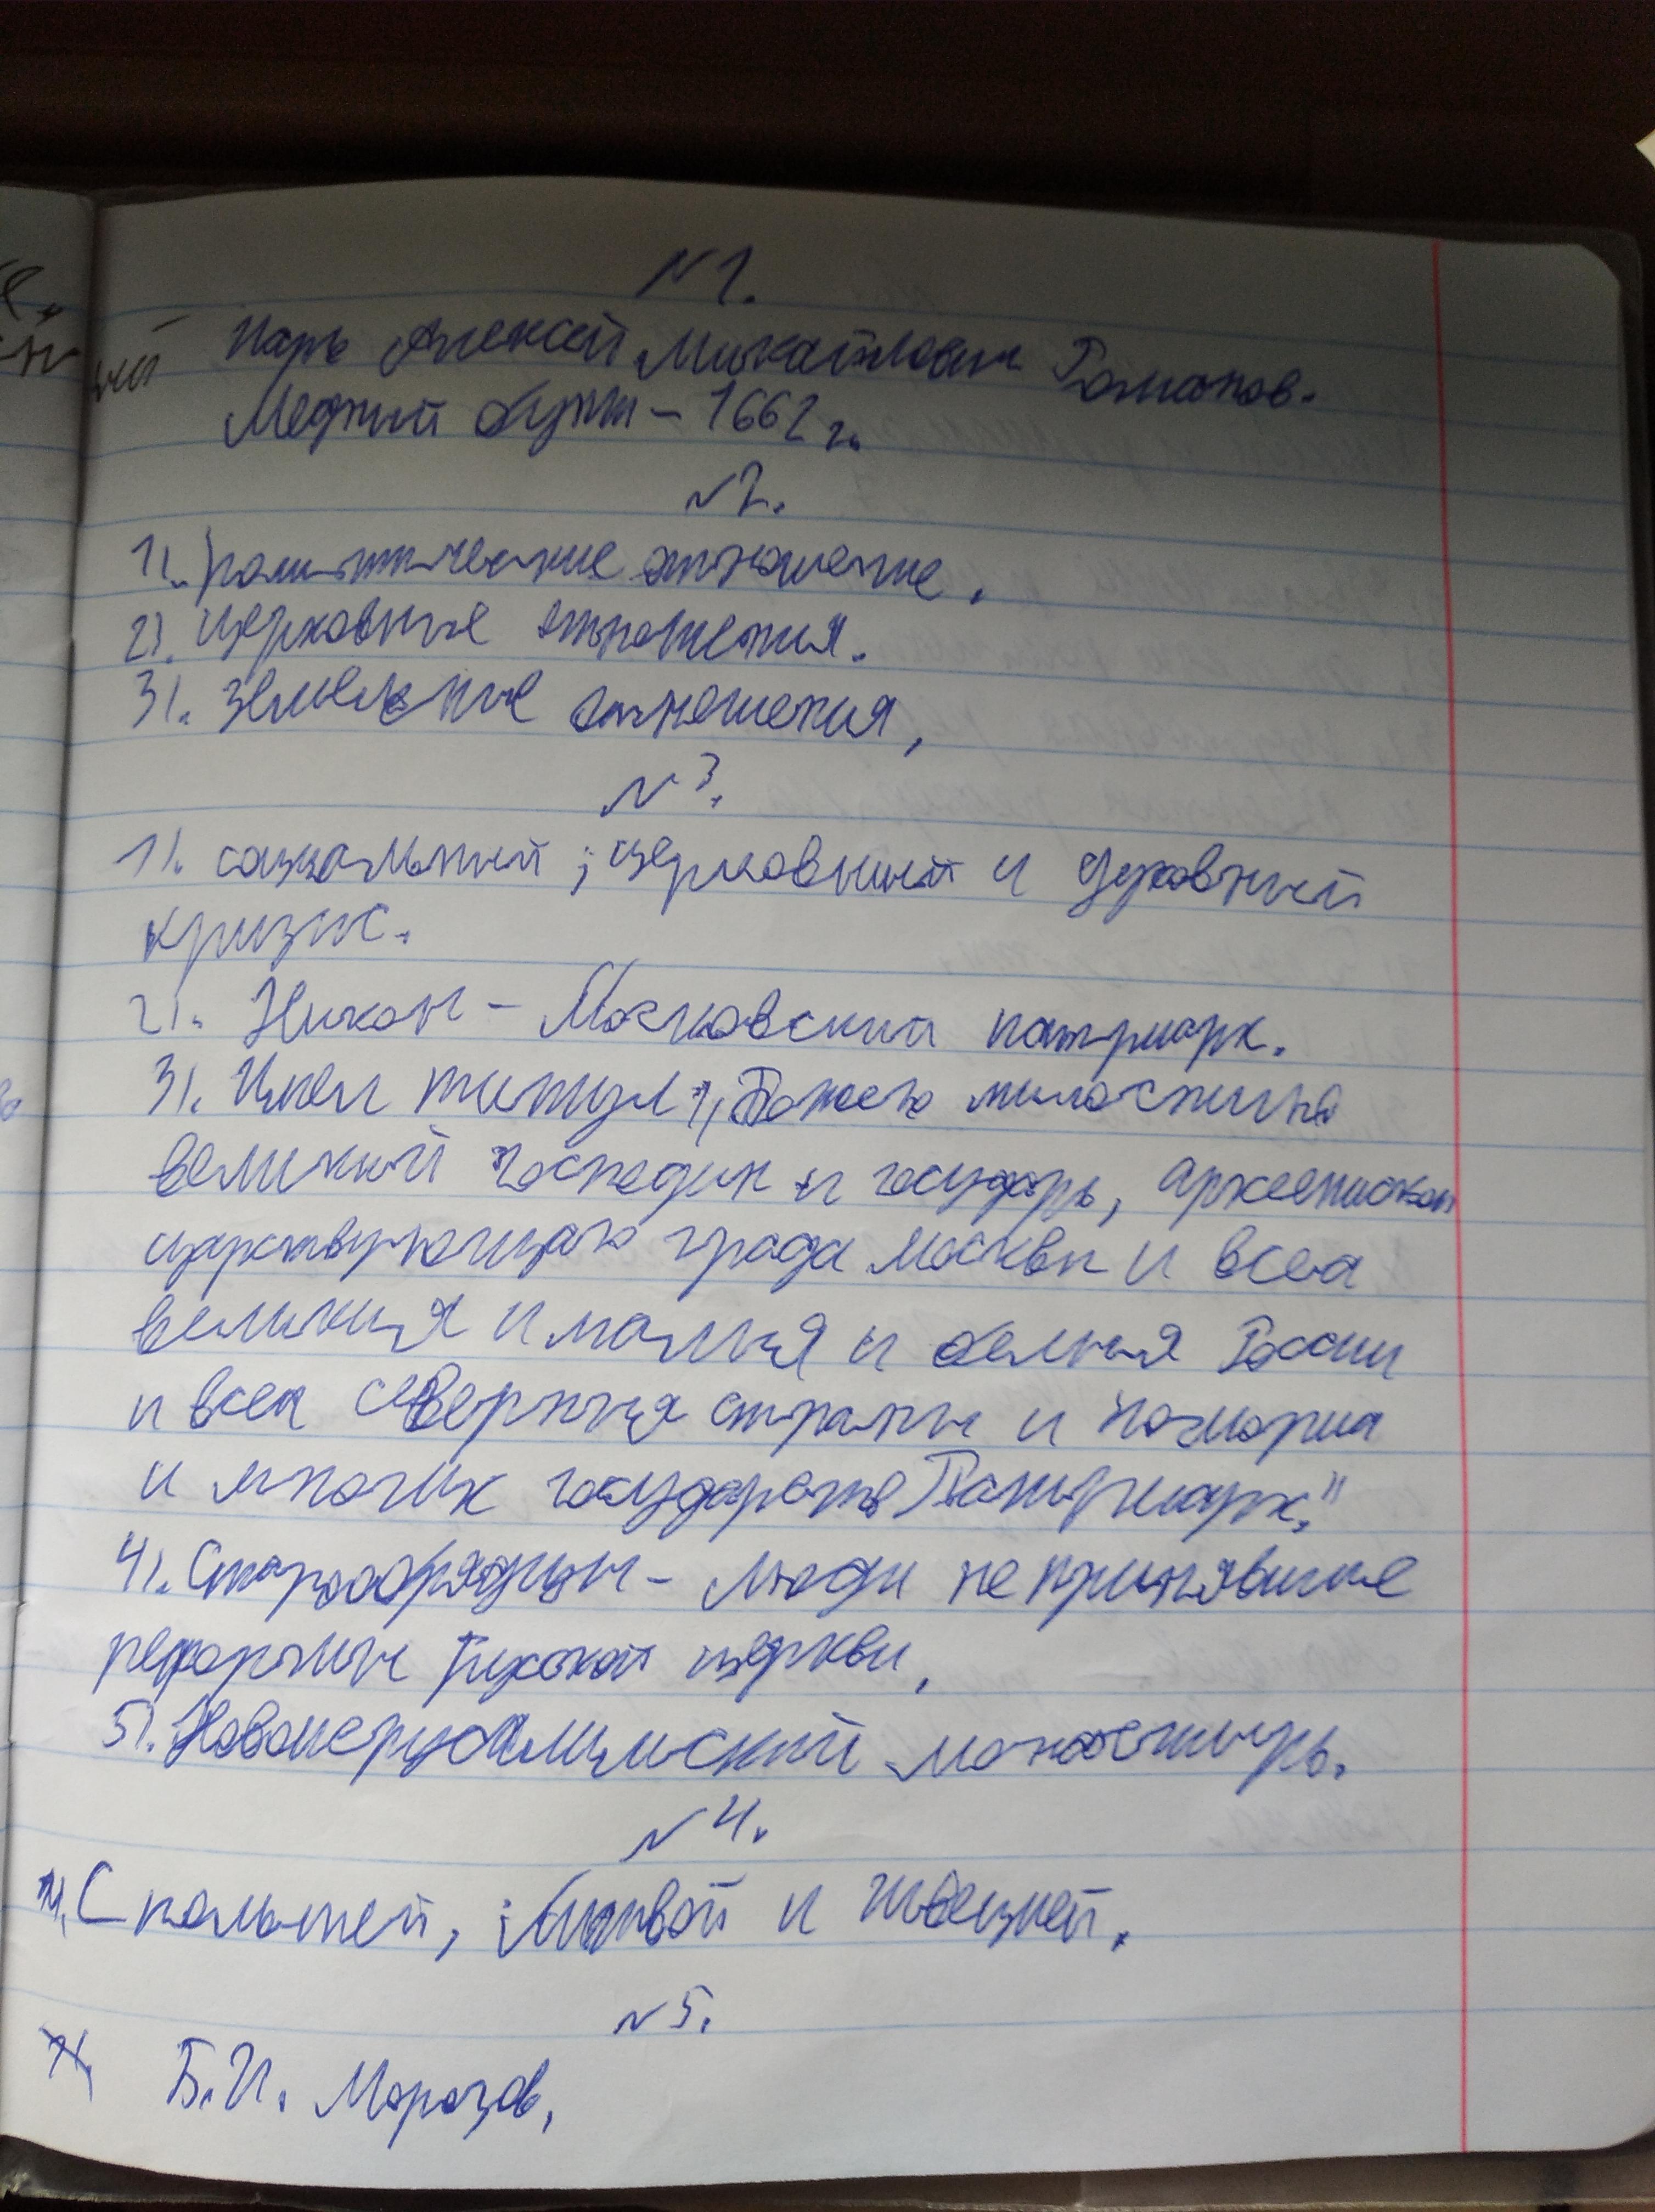 №1.
Царь Алексей Михайлович Романов.
Медный бунт – 1662 г.
№2.
1). политические отношение.
2). церковные отношения.
3). земельные отношения.
№3.
1). социальный, церковный и духовный
кризис.
2). Никон – Московский патриарк.
3). Имел титул „Божею милостию
великий господин и государь, архиепископ
царствующаго града москвы и всеа
великия и малыя и белыя России
и всеа северныя страны и помориа
и многих государств Патриарх."
4). Старообрядцы – люди не принявшие
реформы Руской церкви.
5). Новоиерусалимский монастырь.
№4.
С польшей, литвой и швецией.
№5.
Б.И. Морозов.